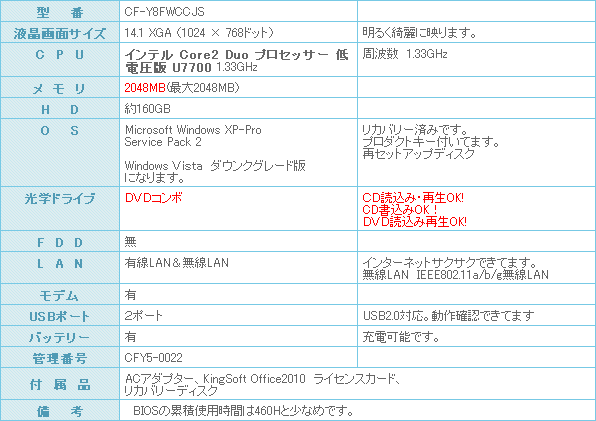 型 番 CF-Y8FWCCJS
液晶画面サイズ 14.1 XGA (1024 × 768ドット) 明るく綺麗に映ります。
C P U インテル Core2 Duo プロセッサー 低 周波数 1.33GHz
電圧版 U7700 1.33GHz
メ モ リ 2048MB(最大2048MB)
H D 約160GB
O S Microsoft Windows XP-Pro リカバリー済みです。
Service Pack 2 プロダクトキー付いてます。
再セットアップディスク
Windows Vista ダウンクグレード版
になります。
光学ドライブ DVDコンボ CD読込み・再生OK!
CD書込みOK!
DVD読込み再生OK!
F D D 無
L A N 有線LAN&無線LAN インターネットサクサクできてます。
無線LAN IEEE802.11a/b/g無線LAN
モデム 有
USBポート 2ポート USB2.0対応。動作確認できてます
バッテリー 有 充電可能です。
管理番号 CFY5-0022
付 属 品 ACアダプター、KingSoft Office2010 ライセンスカード、
リカバリーディスク
備 考 BIOSの累積使用時間は460Hと少なめです。